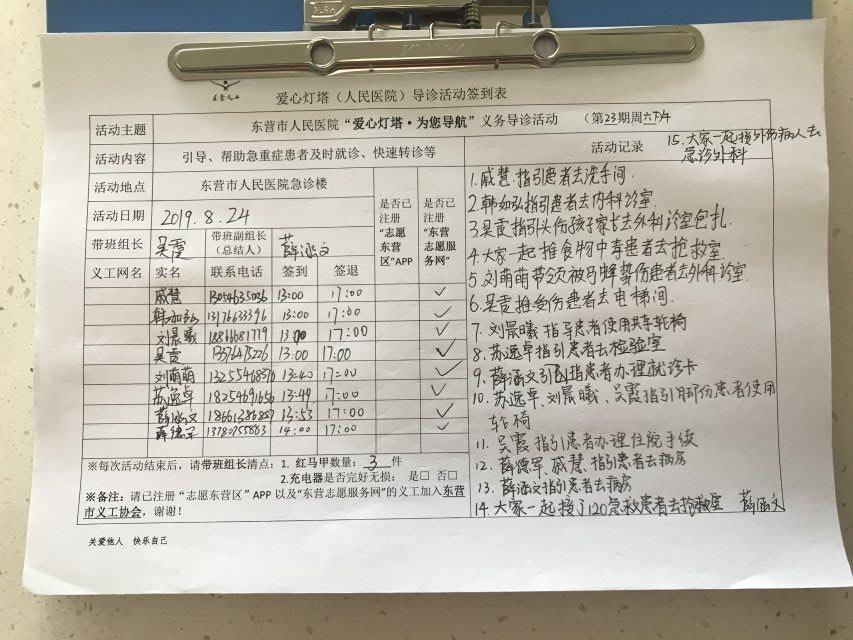 东营义工
爱心灯塔（人民医院）导诊活动签到表
活动主题 东营市人民医院“爱心灯塔·为您导航”义务导诊活动 （第23期周六下午
活动内容 引导、帮助急重症患者及时就诊、快速转诊等
活动地点 东营市人民医院急诊楼
活动日期 2019.8.24
带班组长 吴霞 带班副组长（总结人） 薛涵文
是否已注册“志愿东营区”APP
是否已注册“东营志愿服务网”
义工网名 实名 联系电话 签到 签退
戚慧 13054635036 13:00 17:00 ✓
韩如弘 13176633396 13:00 17:00 ✓
刘晨曦 18866681719 13:00 17:00 ✓
吴霞 13376475226 13:00 17:00 ✓
刘萌萌 13:40 17:00 ✓
苏逸卓 18254691656 13:49 17:00 ✓
薛涵文 18661386887 13:53 17:00 ✓
薛德军 13780755883 14:00 17:00 ✓
※每次活动结束后，请带班组长清点：1. 红马甲数量：3 件
2.充电器是否完好无损： 是□ 否□
※备注：请已注册“志愿东营区”APP 以及“东营志愿服务网”的义工加入东营
市义工协会，谢谢！
关爱他人 快乐自己
活动记录
1. 戚慧.指引患者去洗手间.
2. 韩如弘指引患者去内科诊室.
3. 吴霞指引头伤孩子家长去外科诊室包扎.
4. 大家一起推食物中毒患者去抢救室.
5. 刘萌萌带领被马蜂蛰伤患者去外科诊室.
6. 吴霞推受伤患者去电梯间.
7. 刘晨曦指导患者使用共享轮椅
8. 苏逸卓指引患者去检验室
9. 薛涵文引指患者办理就诊卡
10. 苏逸卓、刘晨曦、吴霞指引脚伤患者使用
轮椅
11. 吴霞指引患者办理住院手续
12. 薛德军,戚慧.指引患者去病房
13. 薛涵文指引患者去病房
14. 大家一起接了120急救患者去抢救室 薛涵文
15. 大家一起接外伤病人去
急诊外科